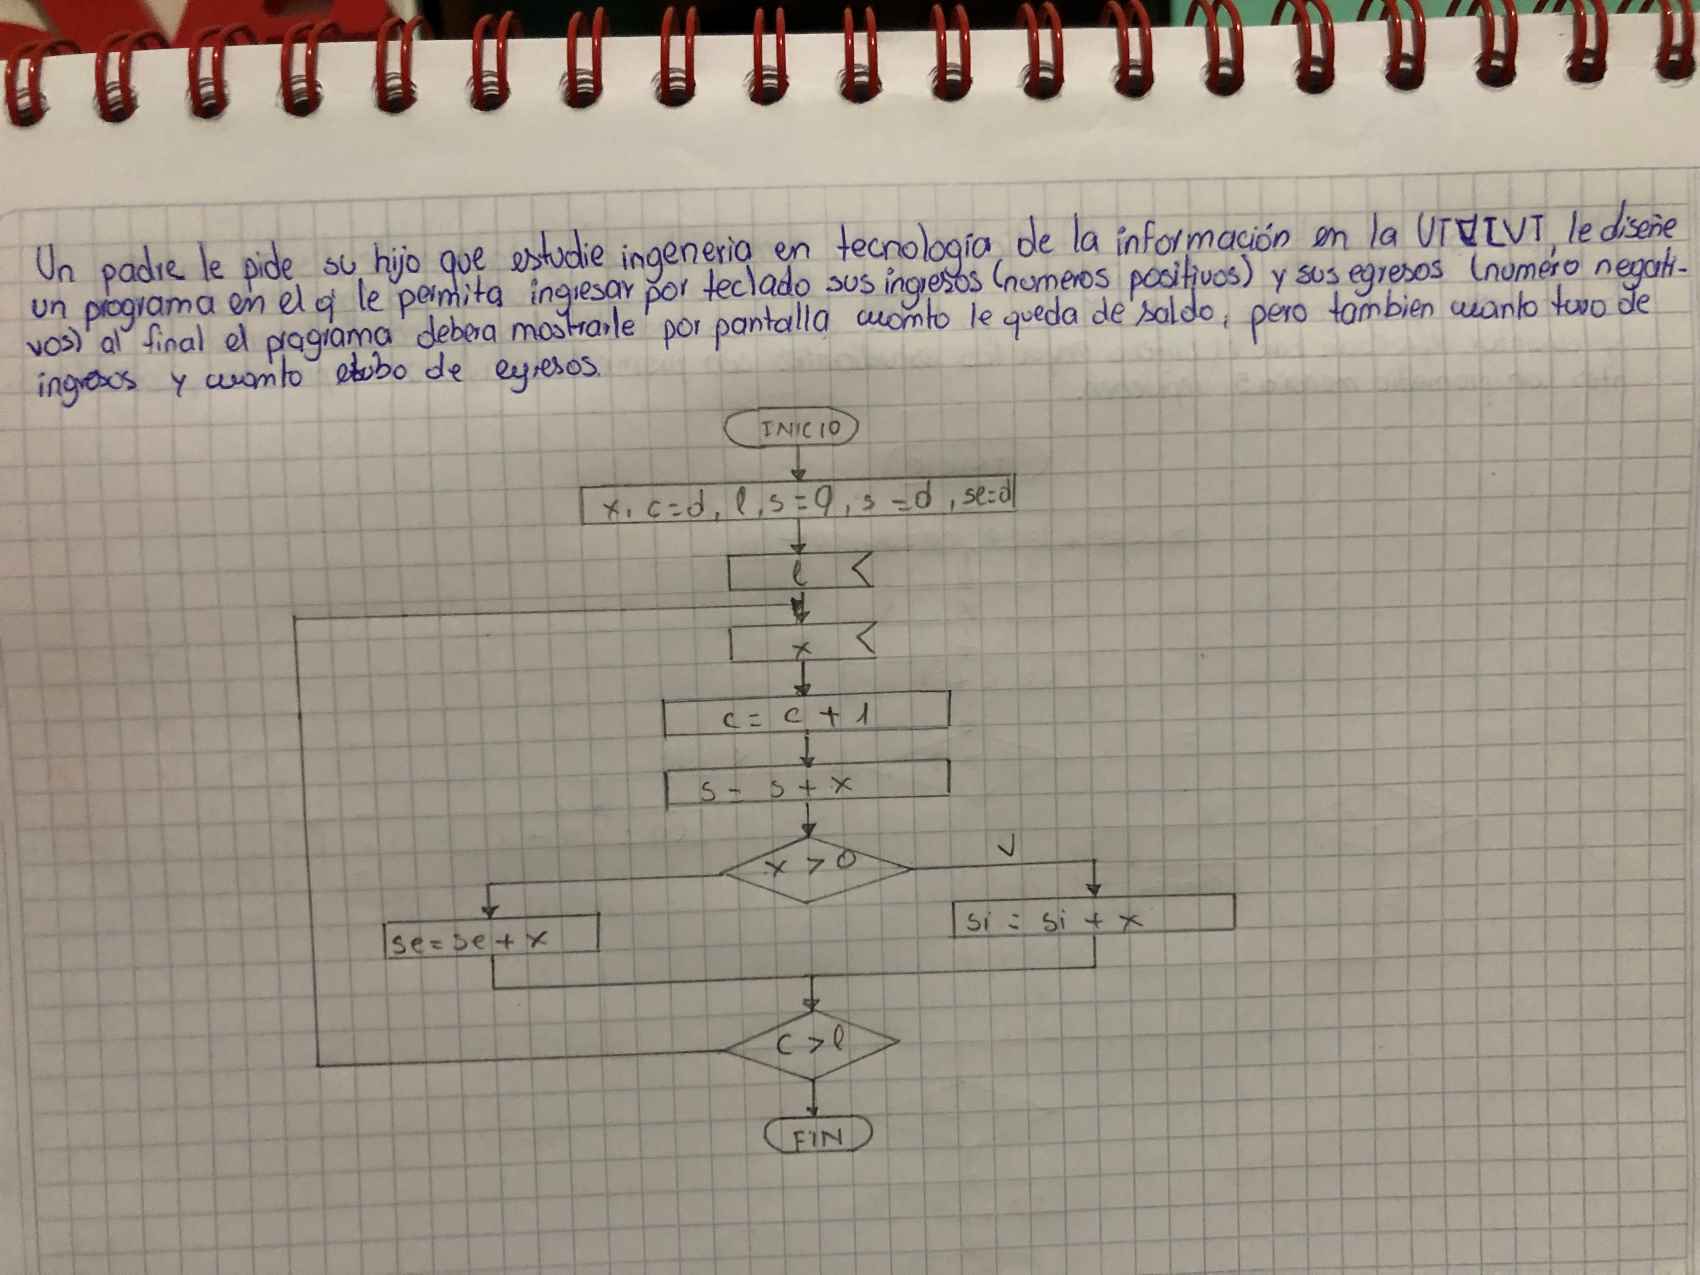 Un padre le pide su hijo que estudie ingeneria en tecnología de la información en la le diseñe
un programa en el q le permita ingresar por teclado sus ingresos (numeros positivos) y sus egresos (numero negati-
vos) al final el programa debera mostrarle por pantalla cuanto le queda de saldo, pero tambien cuanto tuvo de
ingresos y cuanto de egresos.
INICIO
x, c=d, l, s=0, s=d, se=d
l
x
c = c + 1
s = s + x
x > 0
V
se = se + x
si = si + x
c > l
FIN